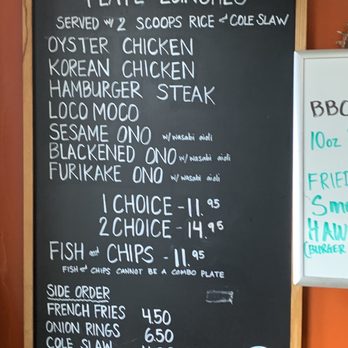 PLATE LUNCHES
SERVED w/ 2 SCOOPS RICE & COLE SLAW
OYSTER CHICKEN
KOREAN CHICKEN
HAMBURGER STEAK
LOCO MOCO
SESAME ONO w/ wasabi aioli
BLACKENED ONO w/ wasabi aioli
FURIKAKE ONO w/ wasabi aioli
1 CHOICE - 11.95
2 CHOICE - 14.95
FISH & CHIPS - 11.95
FISH & CHIPS CANNOT BE A COMBO PLATE
SIDE ORDER
FRENCH FRIES 4.50
ONION RINGS 6.50
COLE SLAW
BBQ
10oz
FRIED
HAW
(BURGER